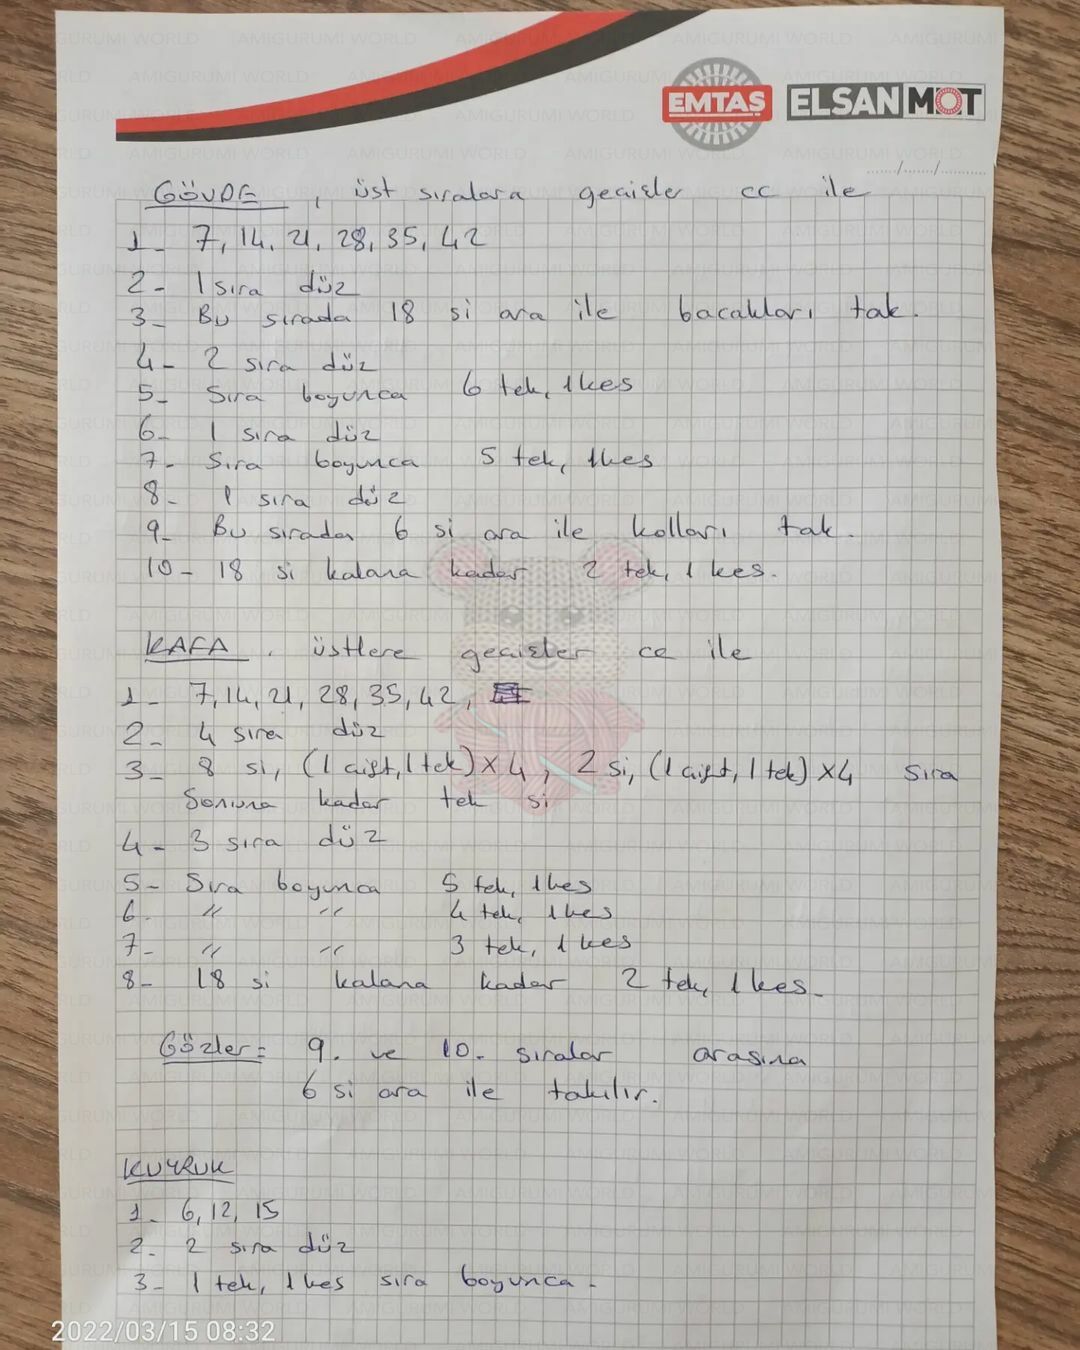 EMTAŞ ELSAN MOT
....../....../............
GÖVDE , üst sıralara geçişler cc ile
1- 7, 14, 21, 28, 35, 42
2- 1 sıra düz
3- Bu sırada 18 si ara ile bacakları tak.
4- 2 sıra düz
5- Sıra boyunca 6 tek, 1kes
6- 1 sıra düz
7- Sıra boyunca 5 tek, 1kes
8- 1 sıra düz
9- Bu sırada 6 si ara ile kolları tak.
10- 18 si kalana kadar 2 tek, 1 kes.
KAFA . üstlere geçişler cc ile
1- 7, 14, 21, 28, 35, 42,
2- 4 sıra düz
3- 8 si, (1 çift, 1 tek) x 4, 2 si, (1 çift, 1 tek) x4 sıra
Sonuna kadar tek si
4- 3 sıra düz
5- Sıra boyunca 5 tek, 1kes
6. " " 4 tek, 1kes
7- " " 3 tek, 1 kes
8- 18 si kalana kadar 2 tek, 1 kes.
Gözler= 9. ve 10. sıralar arasına
6 si ara ile takılır.
KUYRUK
1- 6, 12, 15
2- 2 sıra düz
3- 1 tek, 1 kes sıra boyunca.
AMIGURUMI WORLD
2022/03/15 08:32